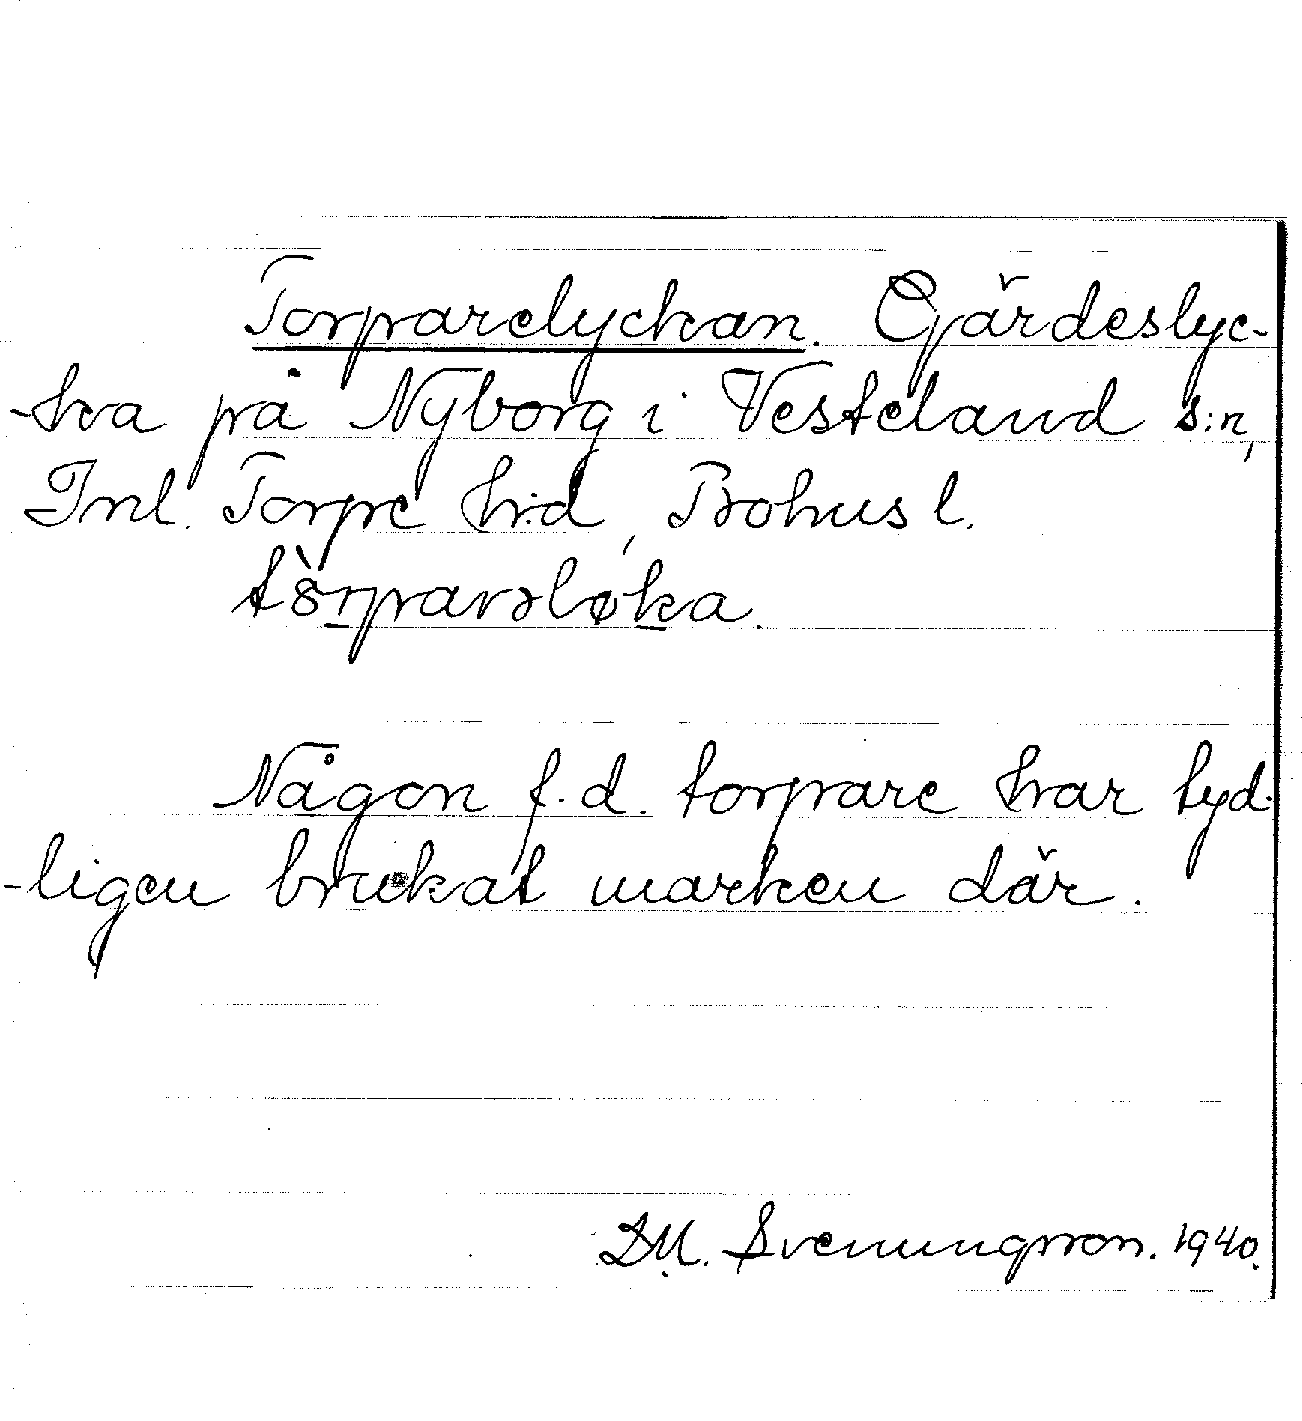 Torparelyckan. Gärdeslyc-
-ka på Nyborg i Vesteland s:n,
Inl. Torpe h:d, Bohus l.
Någon f.d. torpare har tyd-
-ligen brukat marken där.
D.M. Svenungsson. 1940.